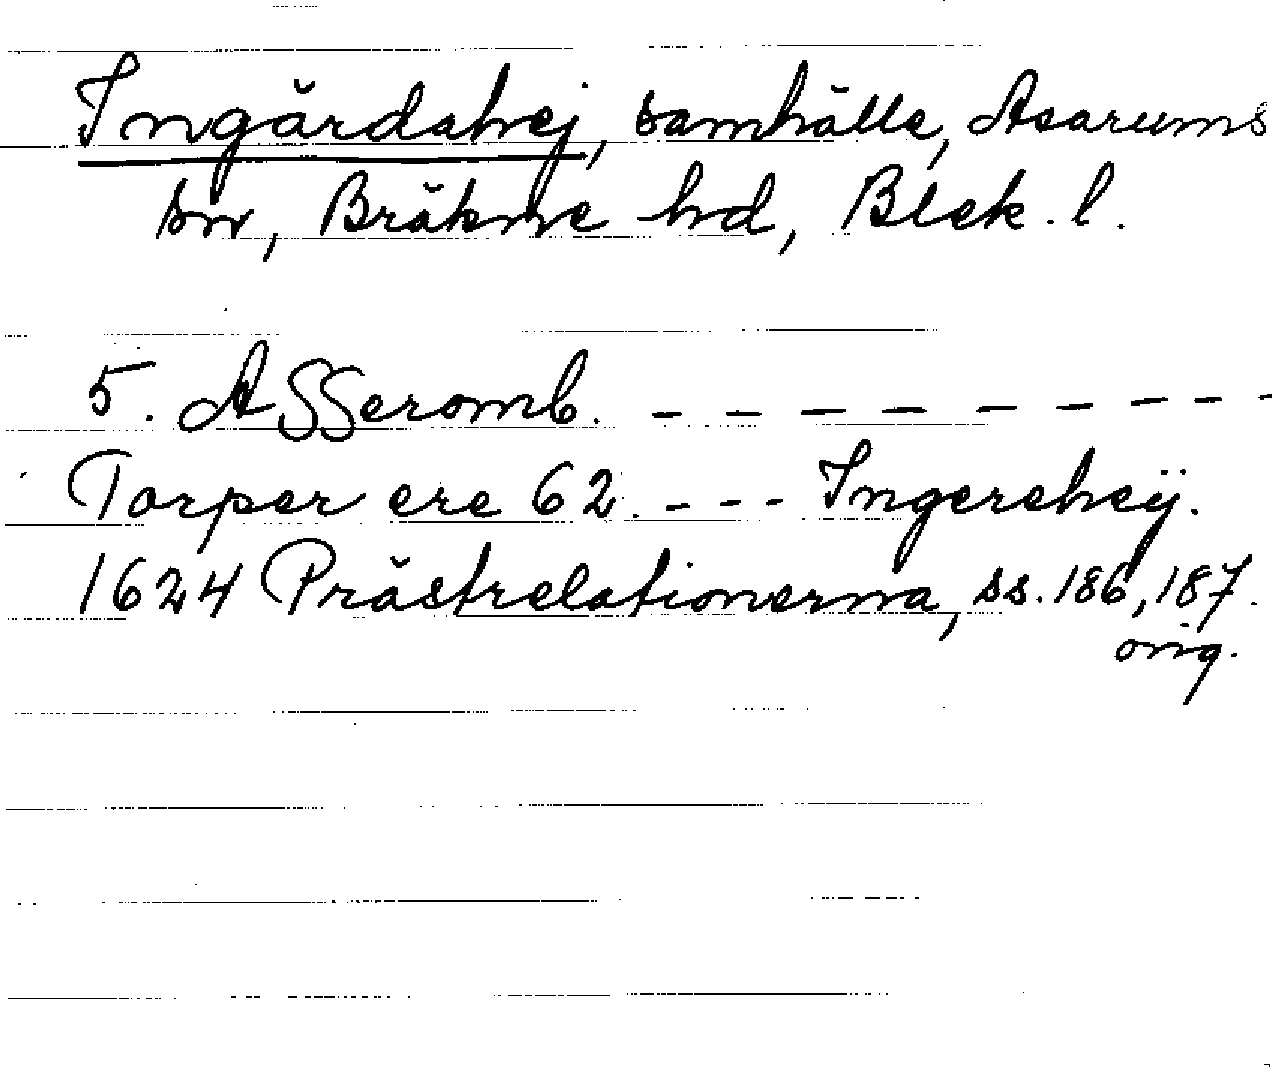 Ingårdahej, samhälle, Asarums
sn, Bräkne hd, Blek. l.
5. ASSeromb. - - - - - - - - -
Torper ere 62. - - - Ingereheÿ.
1624 Prästrelationerna, ss. 186, 187.
orig.